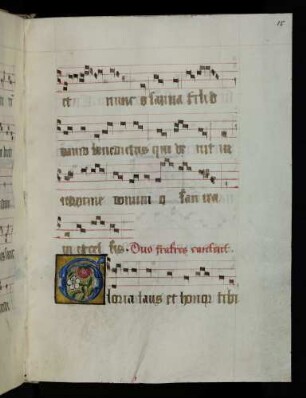 et nunc osanna filio
david benedictus qui ve nit in
nomine domini o san na
in excel sis. Duo fratres cantant.
Gloria laus et honor tibi